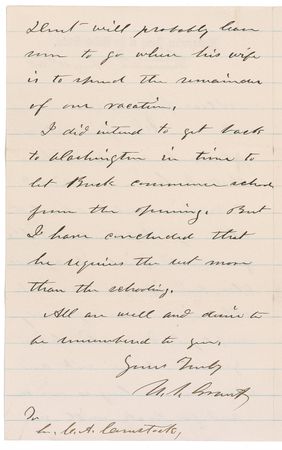 Dent will probably leave
soon to go where his wife
is to spend the remainder
of our vacation.
I did intend to get back
to Washington in time to
let Buck commence school
from the opening. But
I have concluded that
he requires the rest more
than the schooling.
All are well and desire to
be remembered to you.
Yours Truly
U. S. Grant
To
C. A. Comstock,